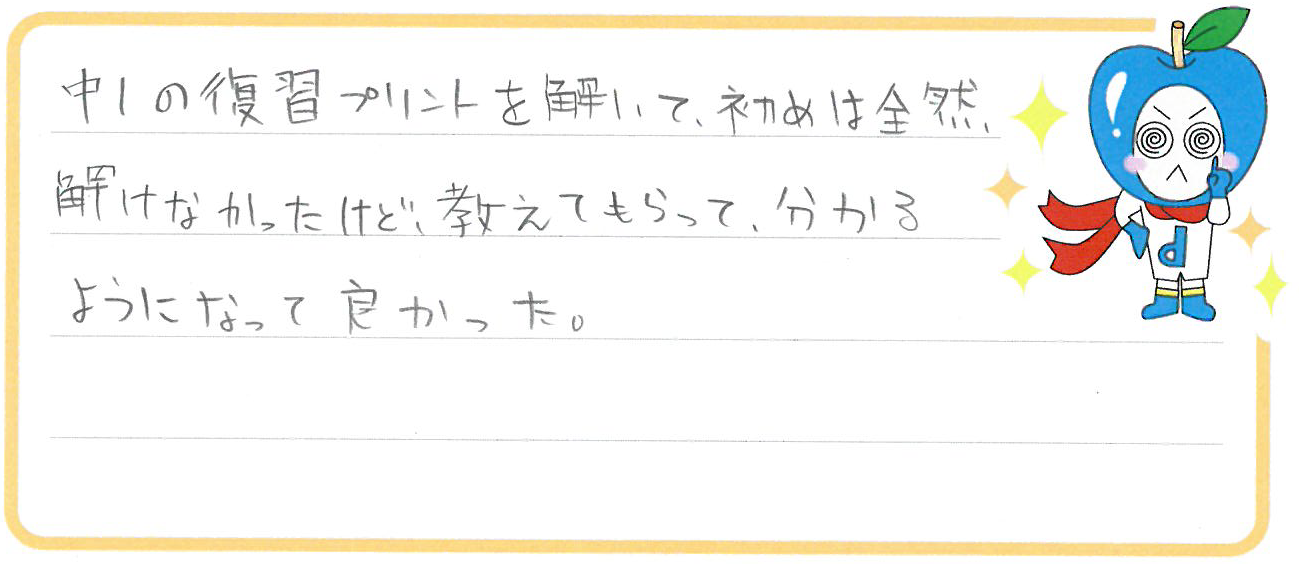 中1の復習プリントを解いて、初めは全然、
解けなかったけど、教えてもらって、分かる
ようになって良かった。
d